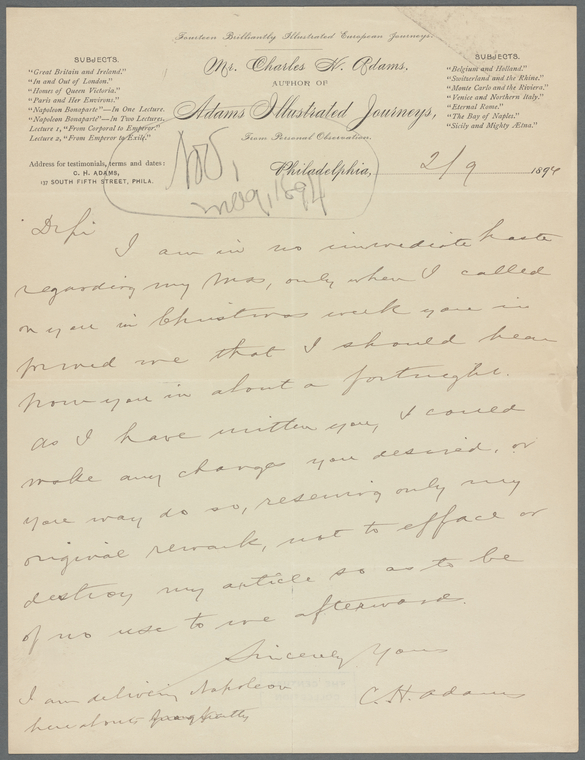 Fourteen Brilliantly Illustrated European Journeys.
SUBJECTS.
"Great Britain and Ireland."
"In and Out of London."
"Homes of Queen Victoria."
"Paris and Her Environs."
"Napoleon Bonaparte"—In One Lecture.
"Napoleon Bonaparte"—In Two Lectures.
Lecture 1, "From Corporal to Emperor."
Lecture 2, "From Emperor to Exile."
Address for testimonials, terms and dates:
C. H. ADAMS,
137 SOUTH FIFTH STREET, PHILA.
Mr. Charles H. Adams,
AUTHOR OF
Adams Illustrated Journeys,
From Personal Observation.
SUBJECTS.
"Belgium and Holland."
"Switzerland and the Rhine."
"Monte Carlo and the Riviera."
"Venice and Northern Italy."
"Eternal Rome."
"The Bay of Naples."
"Sicily and Mighty Ætna."
Philadelphia, 2/9 1894
Dr Sir
I am in no immediate haste
regarding my Mss, only when I called
on you in Christmas week you in
formed me that I should hear
from you in about a fortnight.
As I have written you, I could
make any changes you desired, or
you may do so, reserving only my
original remark, not to efface or
destroy my article so as to be
of no use to me afterwards.
Sincerely Yours
C. H. Adams
I am delivering Napoleon
hereabouts